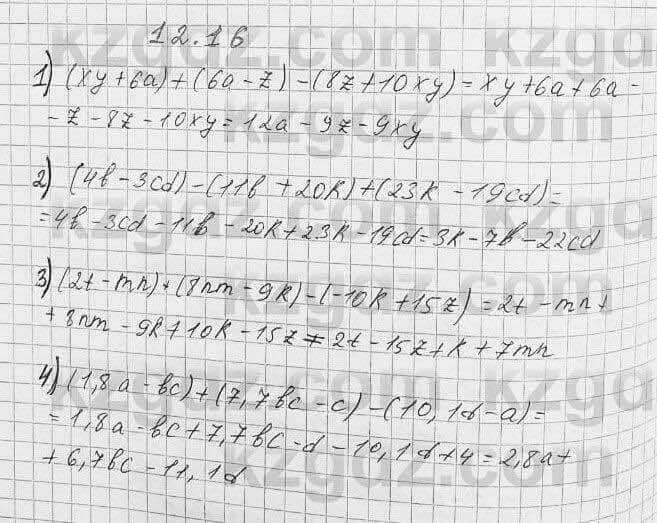 12.16
1) (xy+6a)+(6a-z)-(8z+10xy)=xy+6a+6a-
-z-8z-10xy=12a-9z-9xy
2) (4b-3cd)-(11b+20k)+(23k-19cd)=
=4b-3cd-11b-20k+23k-19cd=3k-7b-22cd
3) (2t-mn)+(8nm-9k)-(-10k+15z)=2t-mn+
+8nm-9k+10k-15z=2t-15z+k+7mn
4) (1,8a-bc)+(7,7bc-c)-(10,1d-a)=
=1,8a-bc+7,7bc-d-10,1d+4=2,8a+
+6,7bc-11,1d